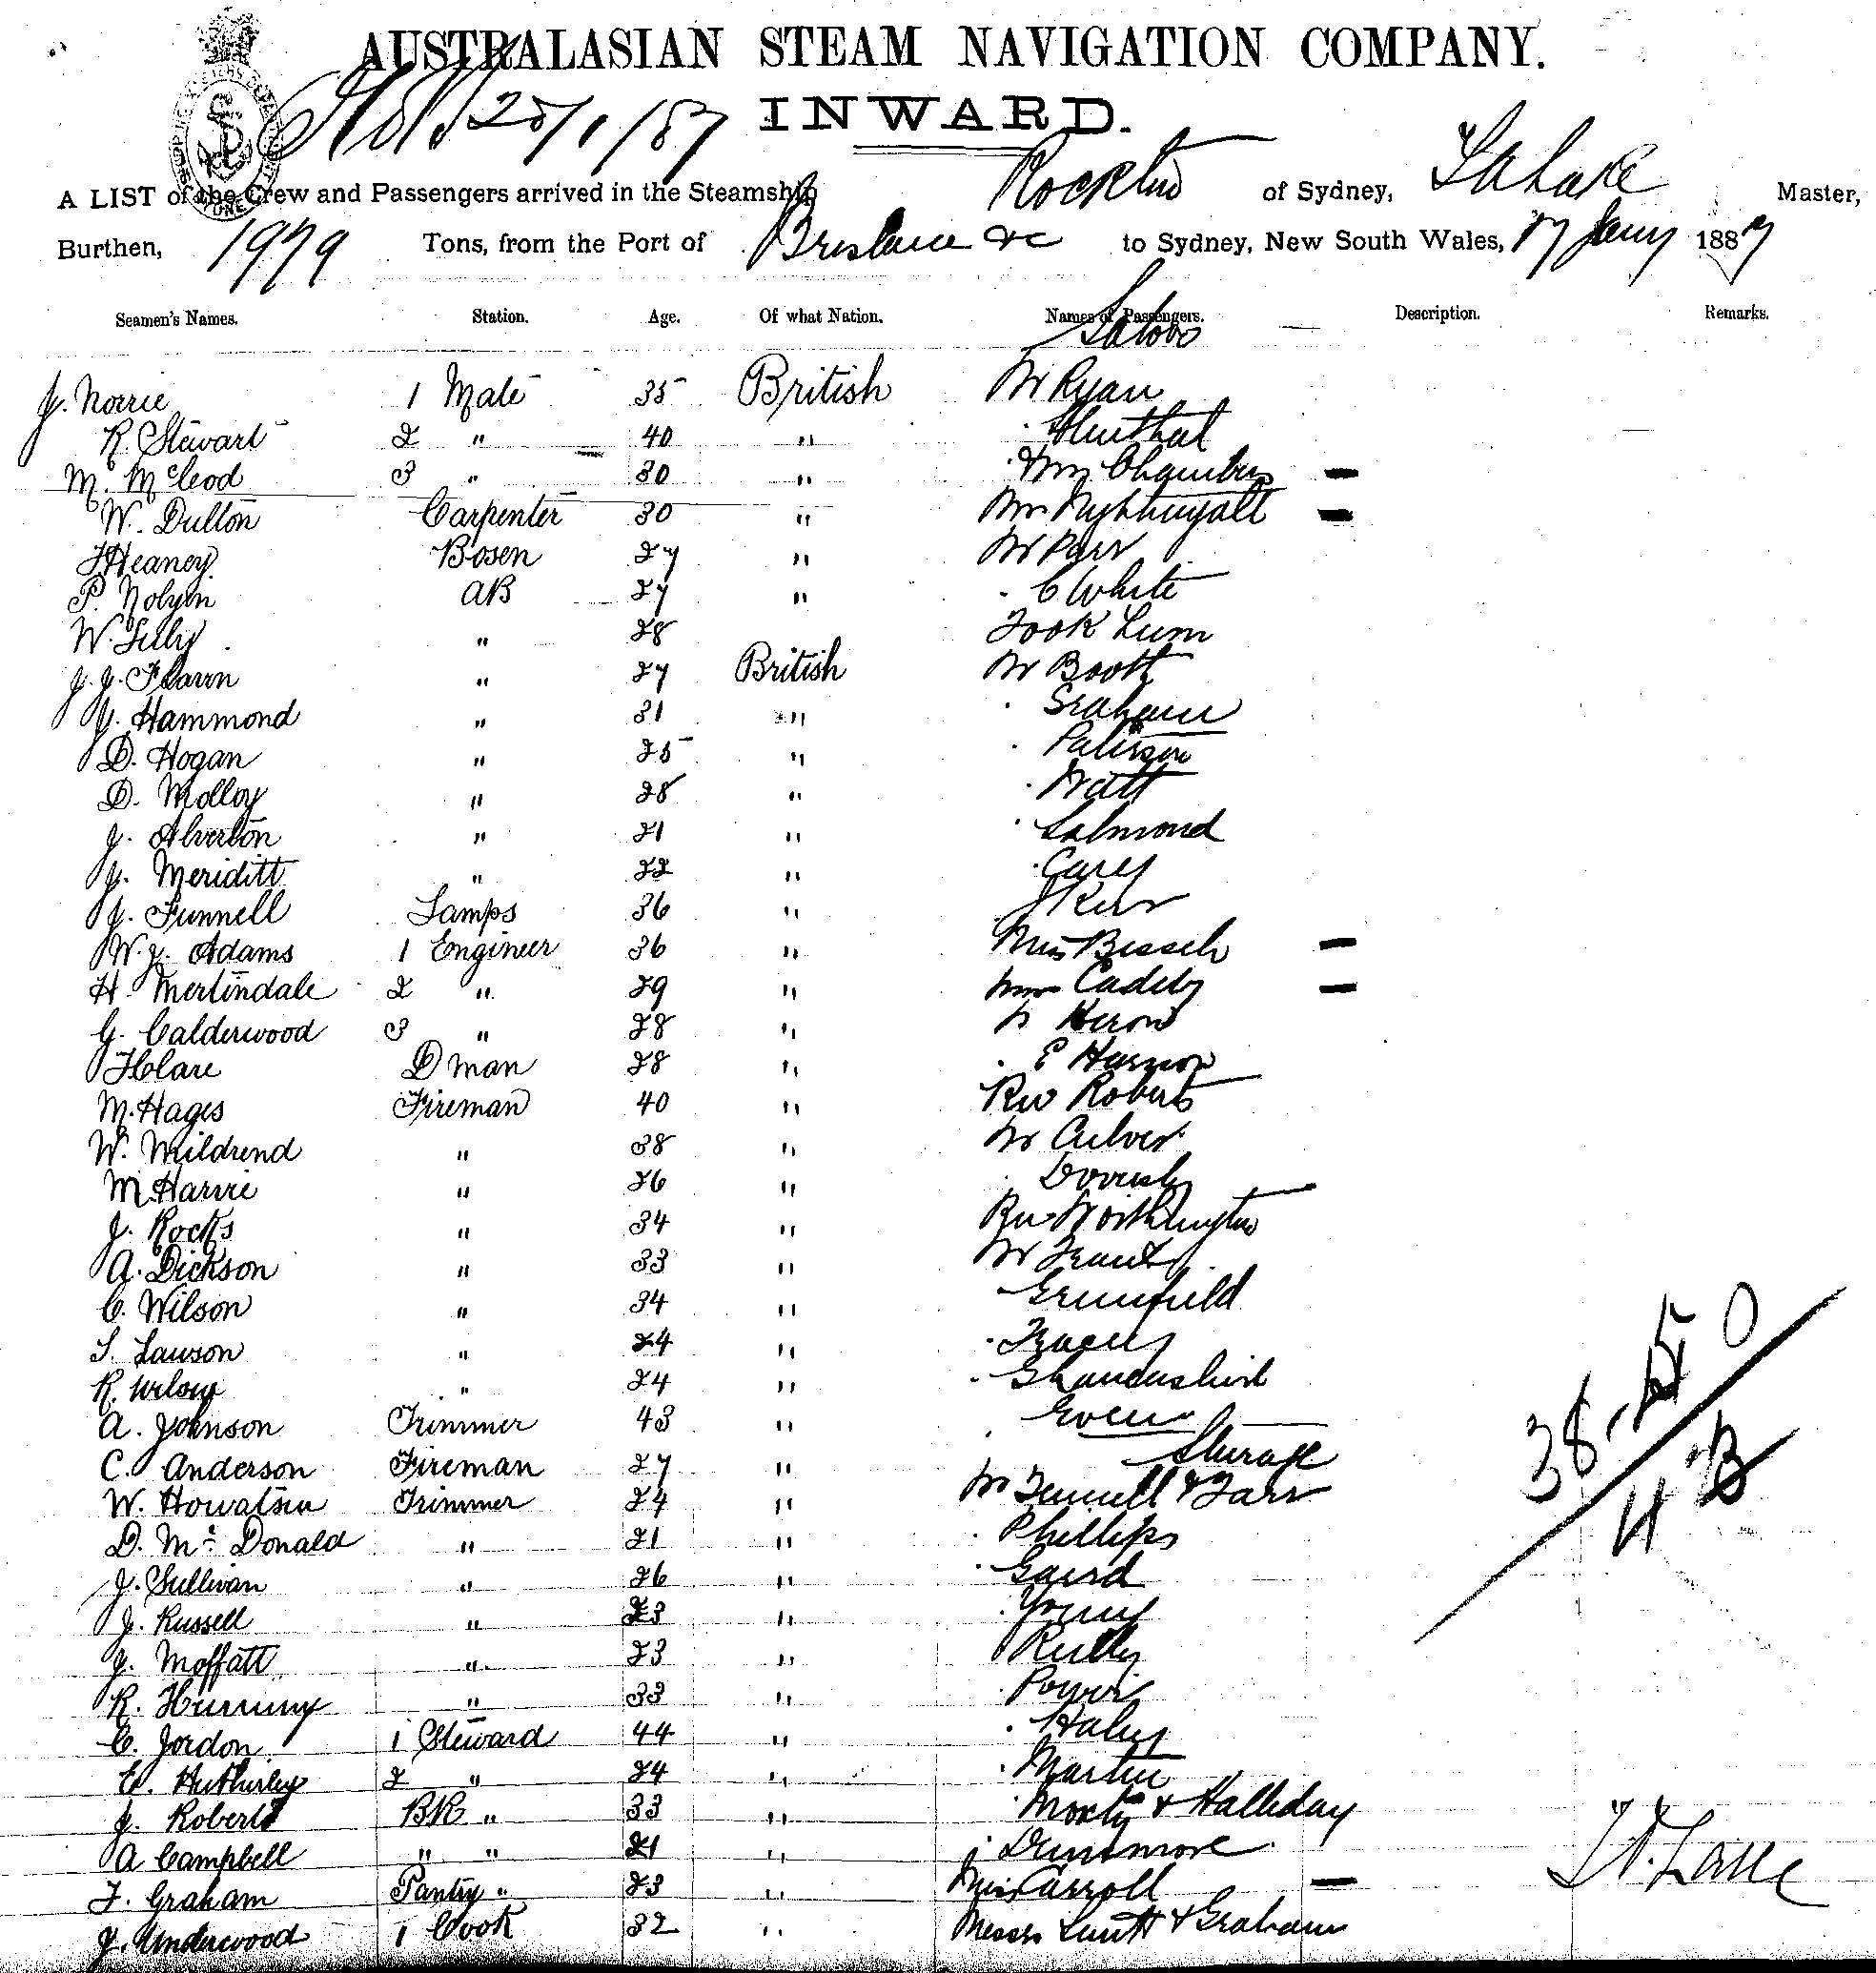 AUSTRALASIAN STEAM NAVIGATION COMPANY.
25/1/87 INWARD.
A LIST of the Crew and Passengers arrived in the Steamship Rockton of Sydney, Master,
Burthen, 1979 Tons, from the Port of Brisbane &c to Sydney, New South Wales, 17 Jany 1887
Seamen's Names. Station. Age. Of what Nation. Names of Passengers. Description. Remarks.
Saloon
J. Norrie 1 Mate 35 British Mr Ryan
R. Stewart 2 " 40 "
M. McLeod 3 " 30 " Chambers —
W. Dutton Carpenter 30 " —
Heaney Bosen 27 " Mr Parr
P. AB 27 " C White
W. " 28 Fook Lum
J. J. Flavin " 27 British Mr Booth
J. Hammond " 31 " Graham
D. Hogan " 25 " Patison
D. Molloy " 28 " Watt
J. Alverton " 21 " Salmond
J. Meriditt " 22 " Carey
J. Funnell Lamps 36 " Kerr
W. J. Adams 1 Engineer 36 " Miss —
H. Mertindale 2 " 29 " —
G. Calderwood 3 " 28 " Heron
Clare D man 28 " E
M. Hages Fireman 40 " Rev Roberts
W. Mildrend " 38 " Mr Culver
M Harvie " 26 "
J. Rocks " 34 " Rev Worthington
A. Dickson " 33 " Mr
C. Wilson " 34 " Greenfield
S. Lawson " 24 " Tracey
R. " 24 "
A. Johnson Trimmer 43 "
Steerage
C. Anderson Fireman 27 "
W. Howatson Trimmer 24 " Mr Fennell & Farr
D. McDonald " 21 " Phillips
J. Sullivan " 26 " Gaird
J. Russell " 23 " Young
J. Moffatt " 23 " Reilly
R. " 33 " Power
C. Jordon 1 Steward 44 " Haley
E. 2 " 24 " Martin
J. Roberts BR " 33 " & Halliday
A Campbell " " 21 " Dunsmore
F. Graham Pantry " 23 " Miss Carroll —
J. Underwood 1 Cook 32 " Messrs & Graham